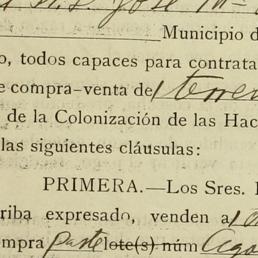 José M
Municipio d
o, todos capaces para contrata
e compra-venta de terre
de la Colonización de las Hac
las siguientes cláusulas:
PRIMERA.—Los Sres. 
riba expresado, venden a
ompra parte lote(s) núm